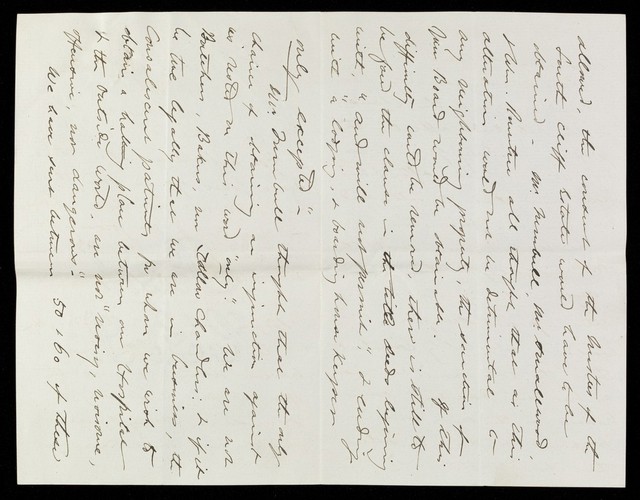 allowed, the consent of the Trustees of the
South Cliff Estate would have to be
obtained. Mr. Turnbull, Mr. Smallwood
& Mrs. all thought that as this
alteration would not be detrimental to
any neighbouring property, the sanction of
this Board would be obtainable. If this
difficulty could be removed, there is still to
be faced the clause in the title deeds beginning
with, "and will not permit" & ending
with "a lodging, & boarding house keeper
only excepted".
Mr Turnbull thought that the only
chance of obtaining an injunction against
us rested on this word "only". We are not
Butchers, Bakers, nor Tallow Chandlers; & if it
be true legally that we are in business, the
Convalescent patients for whom we wish to
obtain a halting place between our Hospital
& the outside world, are not "noisy, noisome,
offensive, nor dangerous".
We have sent between 50 & 60 of these